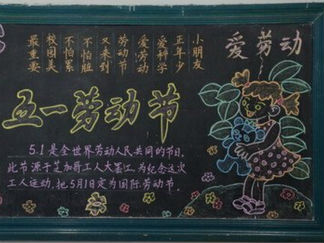 小朋友
正年少
爱科学
爱劳动
劳动节
又来到
不怕脏
不怕累
校园美
最重要
爱劳动
五一劳动节
5.1是全世界劳动人民共同的节日.
此节源于芝加哥工人大罢工,为纪念这次
工人运动,把5月1日定为国际劳动节.